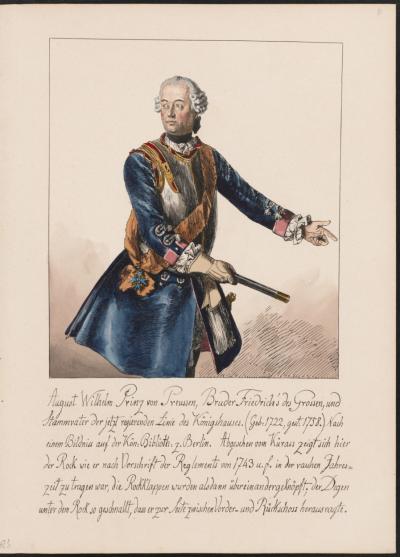 August Wilhelm Prinz von Preussen, Bruder Friedrich's des Grossen, und
Stammvater der jetzt regierenden Linie des Königshauses. (Geb. 1722, gest. 1758.) Nach
einem Bildniss auf der Kön: Biblioth. z. Berlin. Abgesehen vom Kürass zeigt sich hier
der Rock wie er nach Vorschrift der Reglements von 1743 u. f. in der rauhen Jahres-
zeit zu tragen war, die Rockklappen wurden alsdann übereinandergeknöpft; der Degen
unter dem Rock so geschnallt, dass er zur Seite zwischen Vorder- und Rückschoss herausragte.